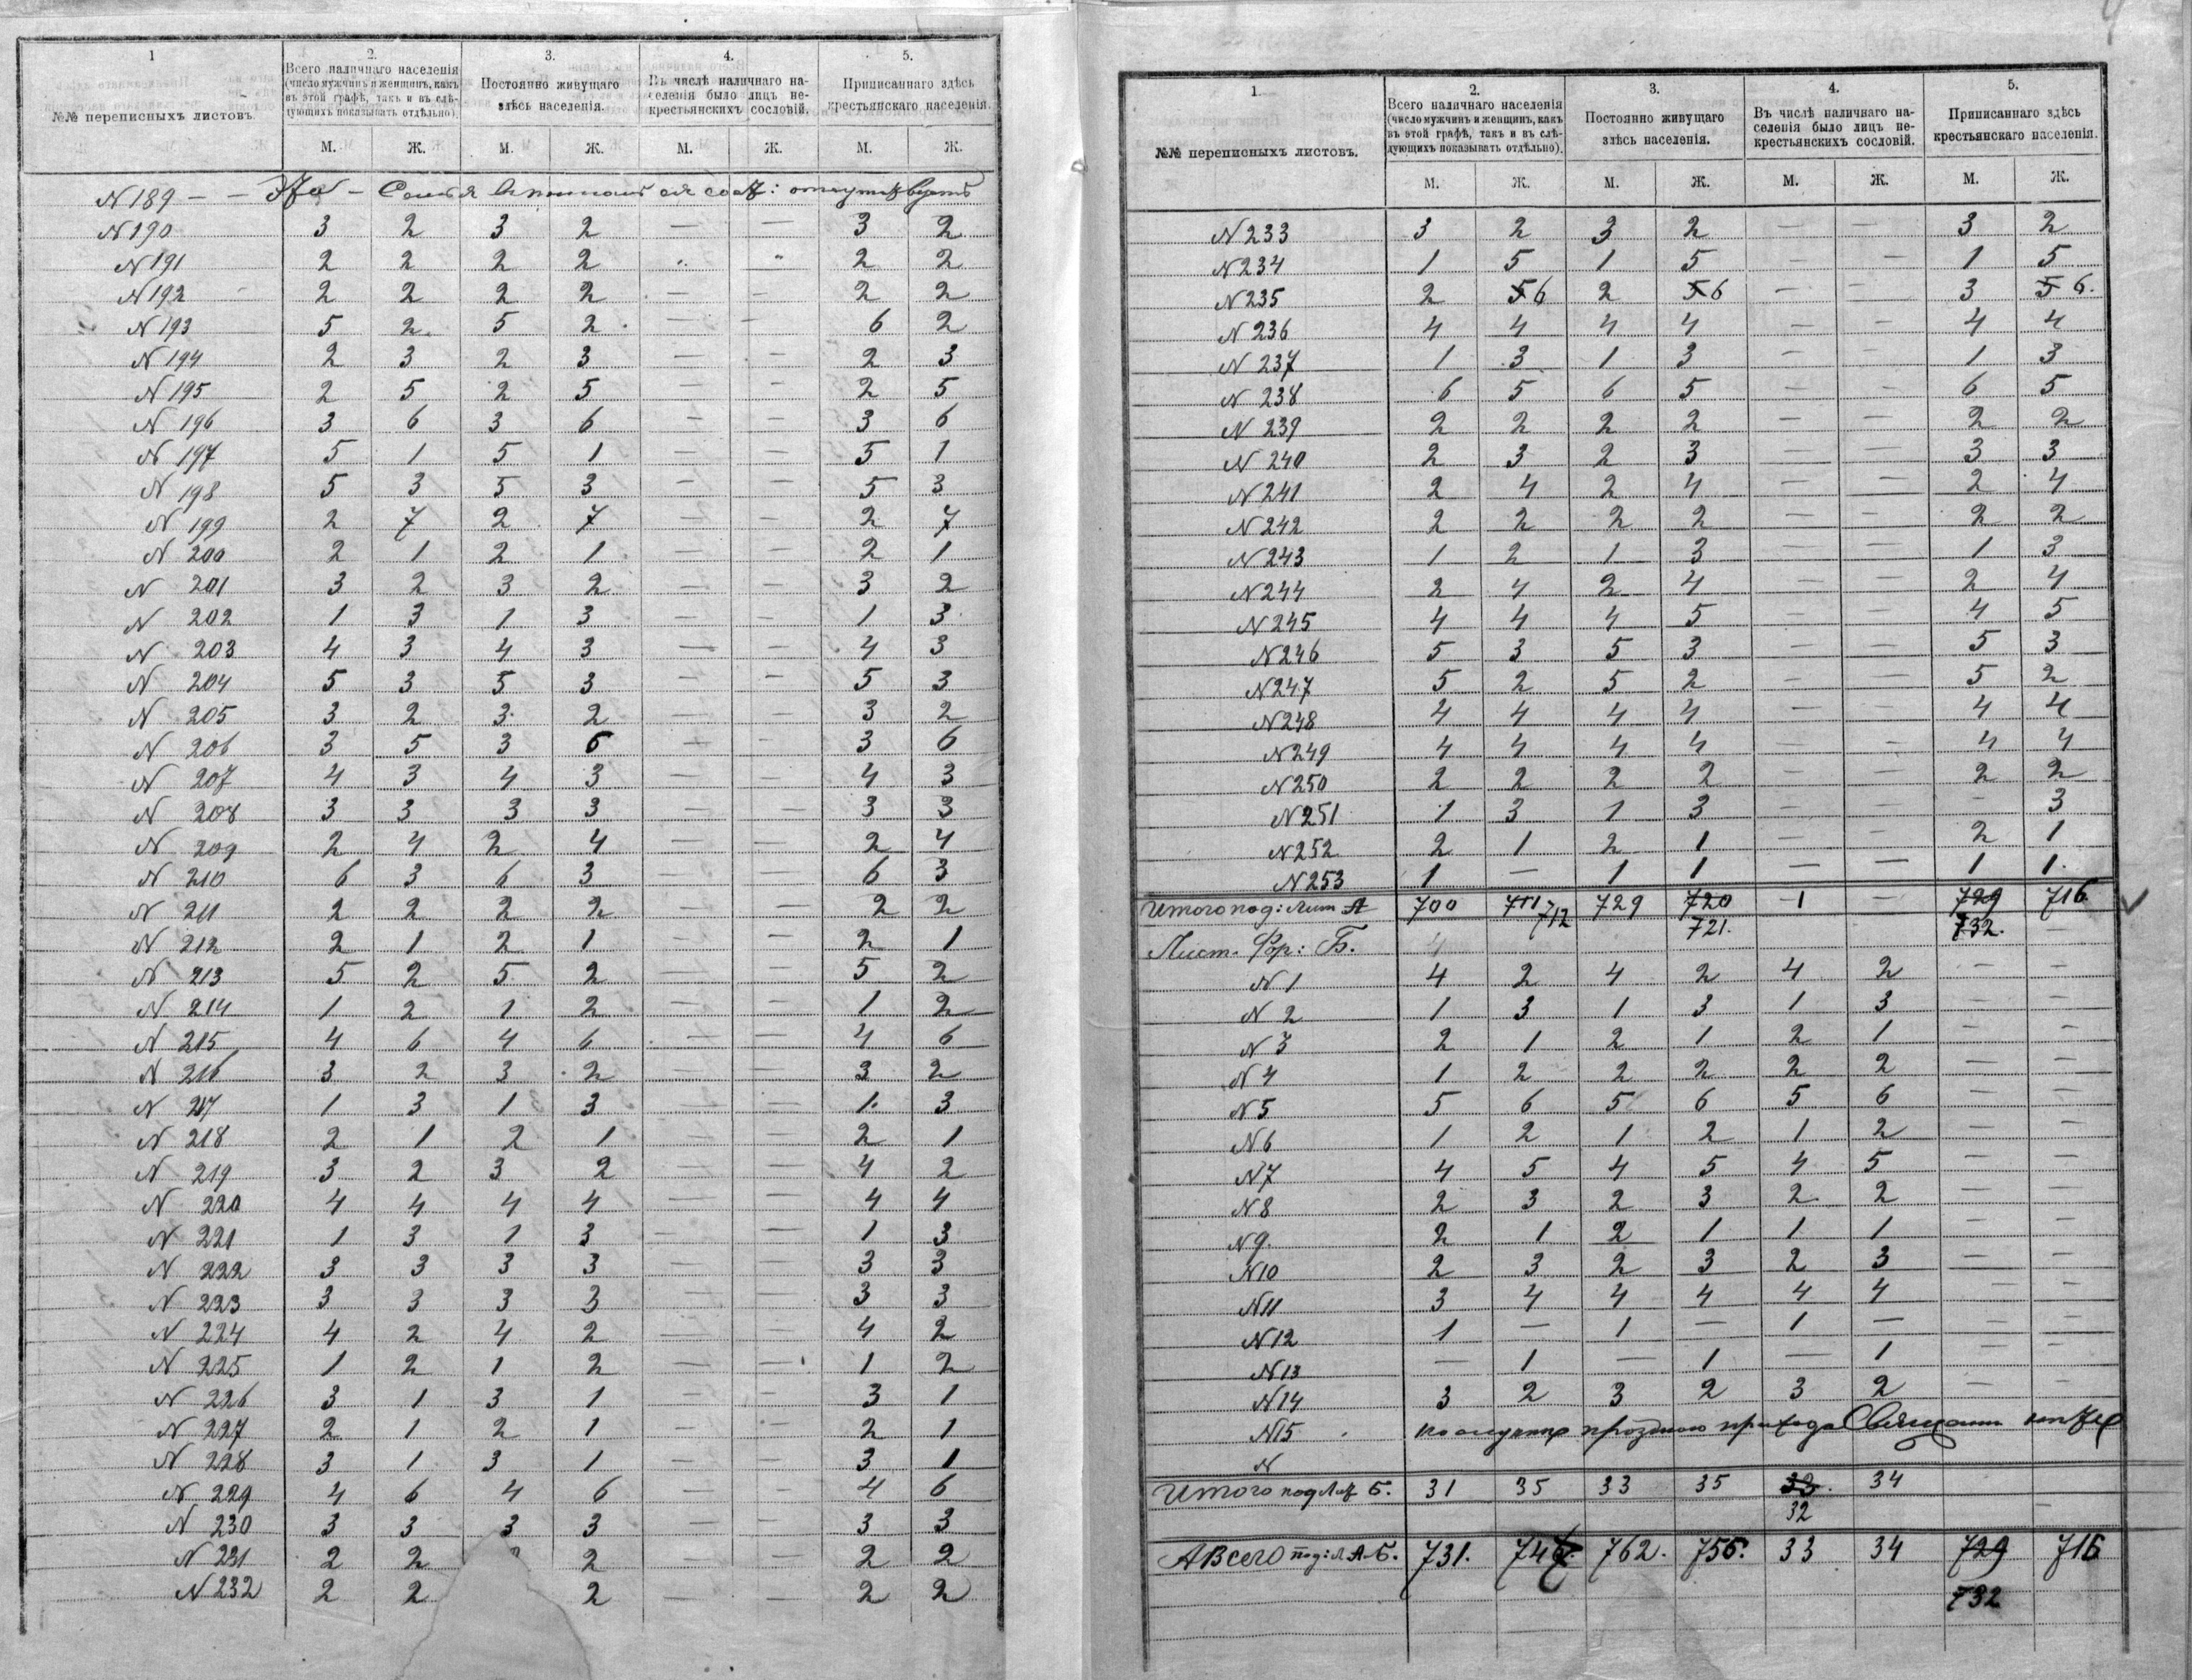 1 2. 3. 4. 5.
№№ переписныхъ листовъ.
Всего наличнаго населенія (число мужчинъ и женщинъ, какъ въ этой графѣ, такъ и въ слѣдующихъ показывать отдѣльно).
Постоянно живущаго здѣсь населенія.
Въ числѣ наличнаго населенія было лицъ некрестьянскихъ сословій.
Приписаннаго здѣсь крестьянскаго населенія.
М. Ж. М. Ж. М. Ж. М. Ж.
N 189 — —
N 190 3 2 3 2 — — 3 2
N 191 2 2 2 2 „ „ 2 2
N 192 2 2 2 2 — — 2 2
N 193 5 2 5 2 — — 6 2
N 194 2 3 2 3 — — 2 3
N 195 2 5 2 5 — — 2 5
N 196 3 6 3 6 — — 3 6
N 197 5 1 5 1 — — 5 1
N 198 5 3 5 3 — — 5 3
N 199 2 7 2 7 — — 2 7
N 200 2 1 2 1 — — 2 1
N 201 3 2 3 2 — — 3 2
N 202 1 3 1 3 — — 1 3
N 203 4 3 4 3 — — 4 3
N 204 5 3 5 3 — — 5 3
N 205 3 2 3 2 — — 3 2
N 206 3 5 3 6 — — 3 6
N 207 4 3 4 3 — — 4 3
N 208 3 3 3 3 — — 3 3
N 209 2 4 2 4 — — 2 4
N 210 6 3 6 3 — — 6 3
N 211 2 2 2 2 — — 2 2
N 212 2 1 2 1 — — 2 1
N 213 5 2 5 2 — — 5 2
N 214 1 2 1 2 — — 1 2
N 215 4 6 4 6 — — 4 6
N 216 3 2 3 2 — — 3 2
N 217 1 3 1 3 — — 1 3
N 218 2 1 2 1 — — 2 1
N 219 3 2 3 2 — — 4 2
N 220 4 4 4 4 — — 4 4
N 221 1 3 1 3 — — 1 3
N 222 3 3 3 3 — — 3 3
N 223 3 3 3 3 — — 3 3
N 224 4 2 4 2 — — 4 2
N 225 1 2 1 2 — — 1 2
N 226 3 1 3 1 — — 3 1
N 227 2 1 2 1 — — 2 1
N 228 3 1 3 1 — — 3 1
N 229 4 6 4 6 — — 4 6
N 230 3 3 3 3 — — 3 3
N 231 2 2 2 — — 2 2
N 232 2 2 2 — — 2 2
1. 2. 3. 4. 5.
№№ переписныхъ листовъ.
Всего наличнаго населенія (число мужчинъ и женщинъ, какъ въ этой графѣ, такъ и въ слѣдующихъ показывать отдѣльно).
Постоянно живущаго здѣсь населенія.
Въ числѣ наличнаго населенія было лицъ некрестьянскихъ сословій.
Приписаннаго здѣсь крестьянскаго населенія.
М. Ж. М. Ж. М. Ж. М. Ж.
N 233 3 2 3 2 — — 3 2
N 234 1 5 1 5 — — 1 5
N 235 2 5 6 2 5 6 — — 3 5 6.
N 236 4 4 4 4 — — 4 4
N 237 1 3 1 3 — — 1 3
N 238 6 5 6 5 — — 6 5
N 239 2 2 2 2 — — 2 2
N 240 2 3 2 3 — — 3 3
N 241 2 4 2 4 — — 2 4
N 242 2 2 2 2 — — 2 2
N 243 1 2 1 3 — — 1 3
N 244 2 4 2 4 — — 2 4
N 245 4 4 4 5 — — 4 5
N 246 5 3 5 3 — — 5 3
N 247 5 2 5 2 — — 5 2
N 248 4 4 4 4 — — 4 4
N 249 4 4 4 4 — — 4 4
N 250 2 2 2 2 — — 2 2
N 251 1 3 1 3 — — — 3
N 252 2 1 2 1 — — 2 1
N 253 1 — 1 1 — — 1 1.
Итого под: Лит А 700 711 729 720 1 — 729 716
712 721. 732.
Лист. Фор: Б. 4
N 1 4 2 4 2 4 2 — —
N 2 1 3 1 3 1 3 — —
N 3 2 1 2 1 2 1 — —
N 4 1 2 2 2 2 2 — —
N 5 5 6 5 6 5 6 — —
N 6 1 2 1 2 1 2 — —
N 7 4 5 4 5 4 5 — —
N 8 2 3 2 3 2 2 — —
N 9. 2 1 2 1 1 1 — —
N 10 2 3 2 3 2 3 — —
N 11 3 4 4 4 4 4 — —
N 12 1 — 1 — 1 — — —
N 13 — 1 — 1 — 1 — —
N 14 3 2 3 2 3 2 — —
N 15 по случаю празднаго прихода Священ
N
Итого под Лит Б. 31 35 33 35 33. 34
32 —
А Всего под: Л А-Б. 731. 747. 762. 756. 33 34 729 716
732